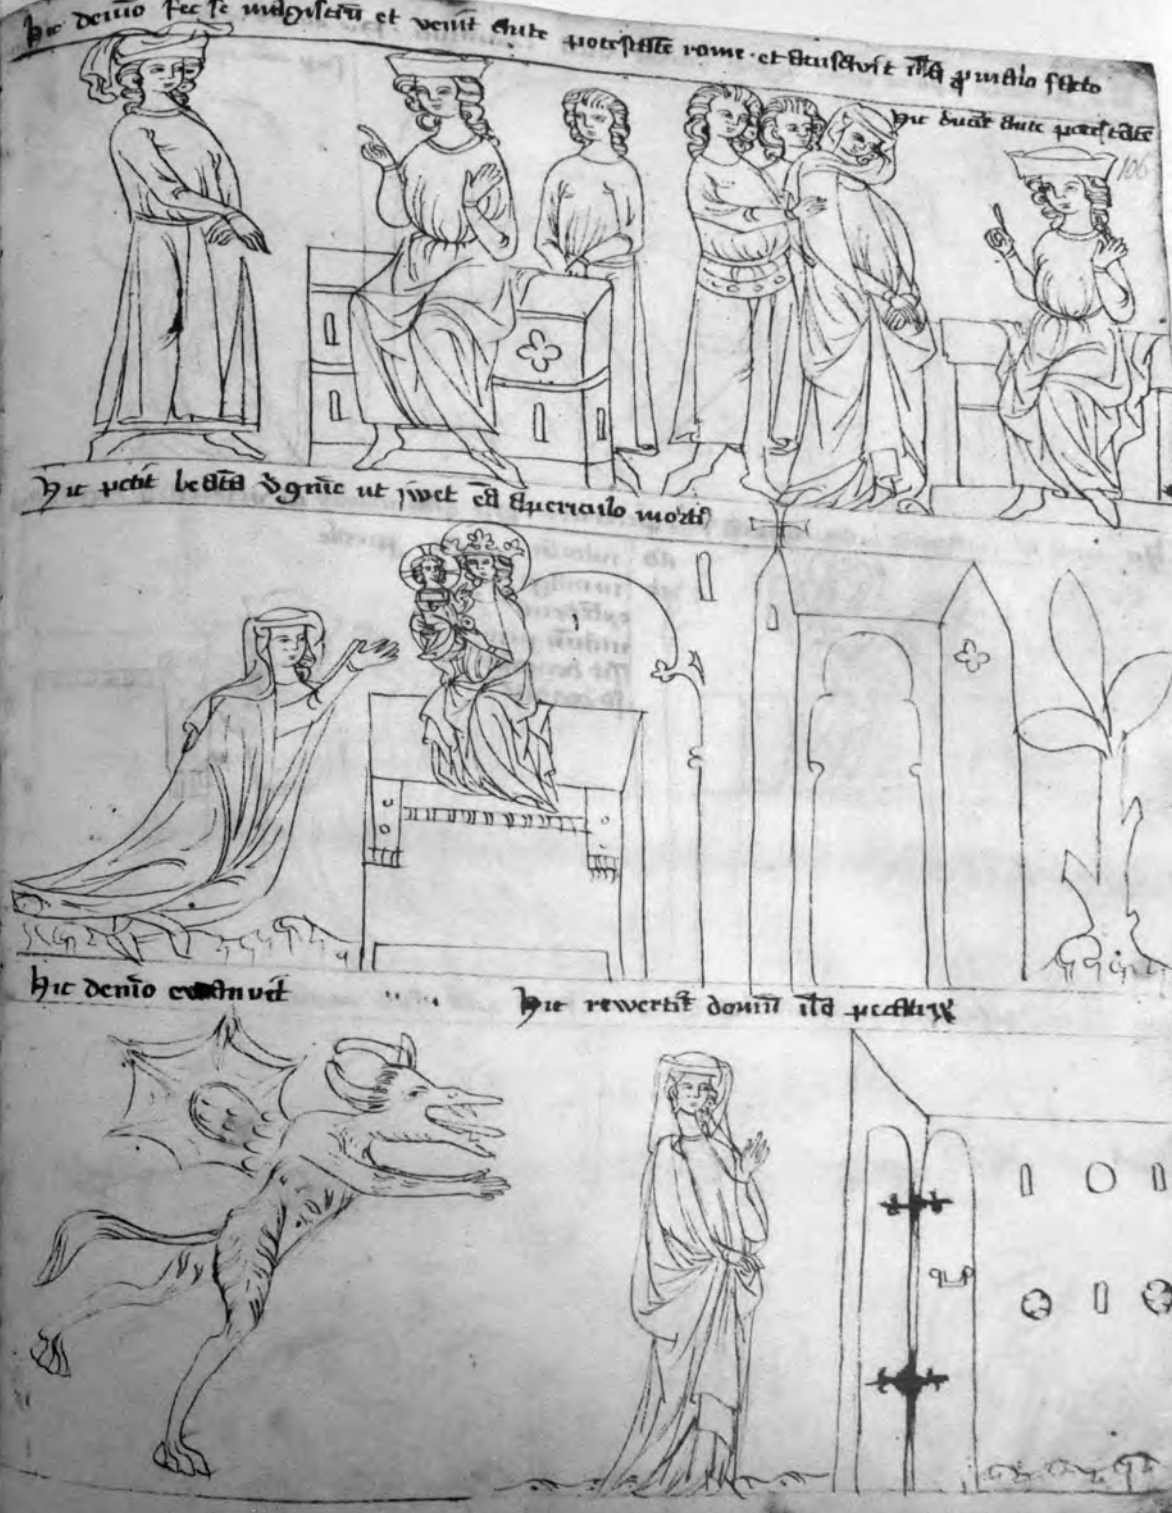 Hic demo fec se magistru et venit ante potestate rome · et acusavit illa p malo facto
hic ducit ante potestate
106
Hic petit beata vgine ut iwet ea apericulo mortis
Hic demo evanuit
Hic rewertit domu illa peccatrix